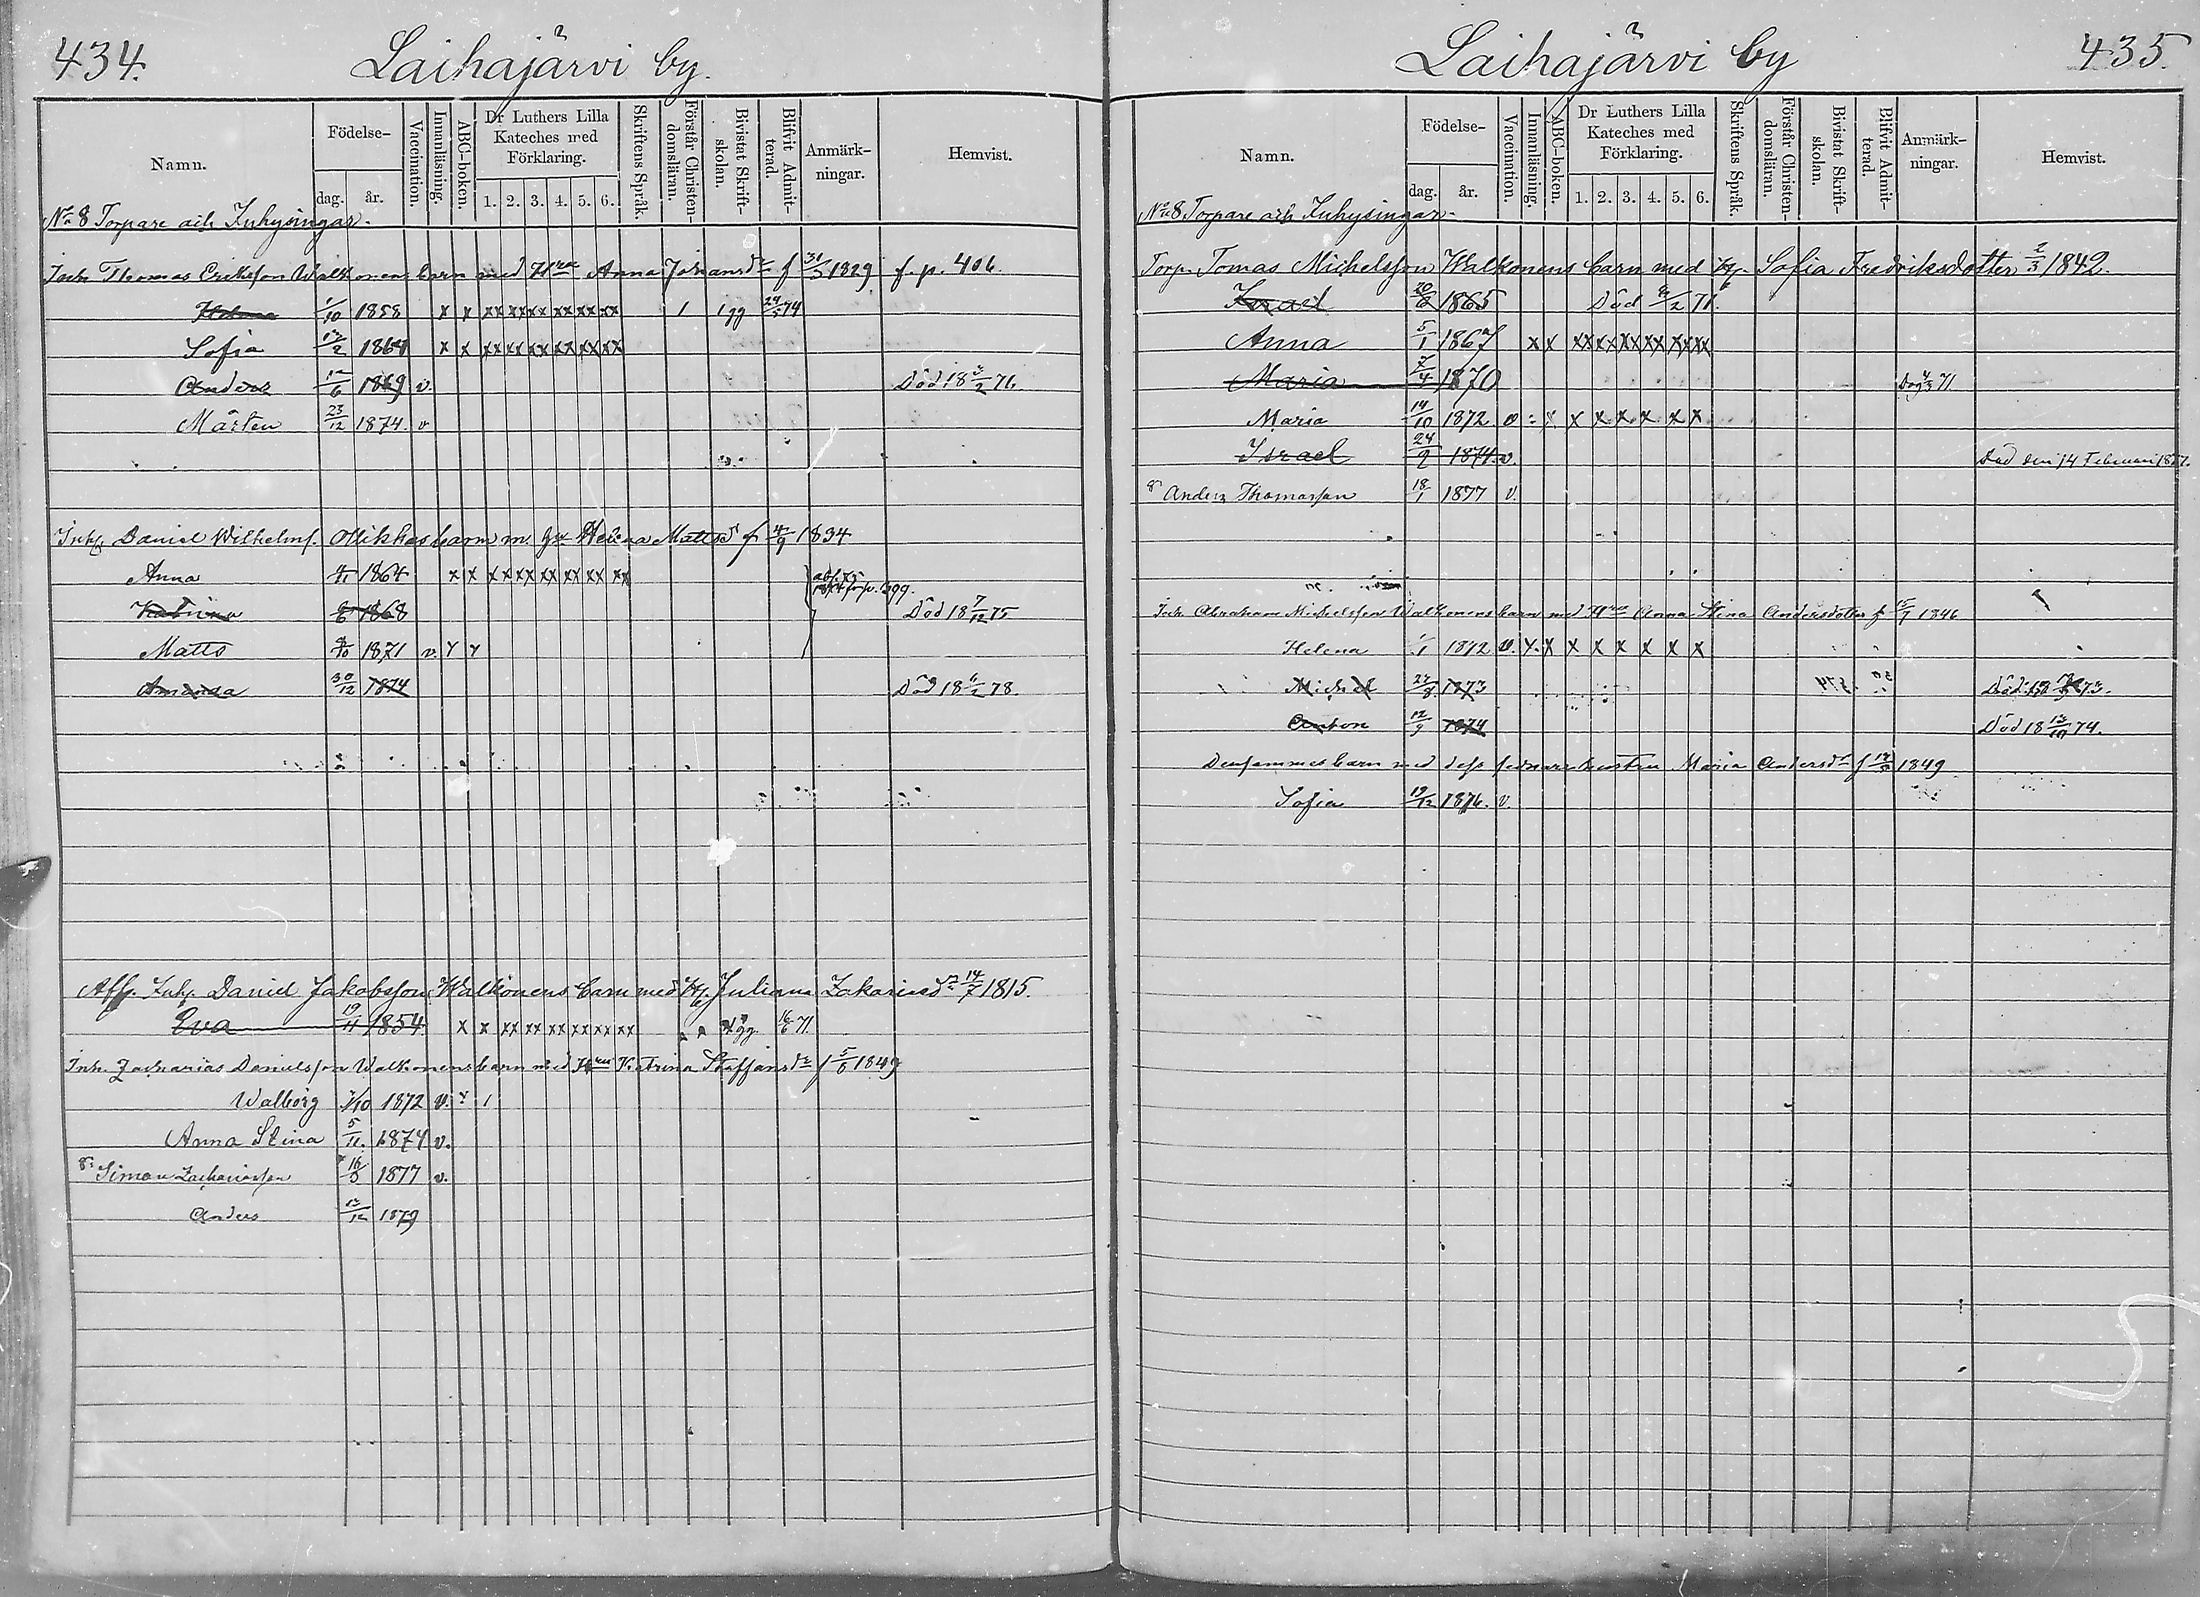 434.
Laihajärvi by.
Namn.
Födelse-
dag.
år.
Vaccination.
Innanläsning.
ABC-boken.
Dr Luthers Lilla
Kateches med
Förklaring.
1. 2. 3. 4. 5. 6.
Skriftens Språk.
Förstår Christen-
domsläran.
Bivistat Skrift-
skolan.
Blifvit Admit-
terad.
Anmärk-
ningar.
Hemvist.
No 8 Torpare och Inhysingar.
Inh. Thomas Eriksson Walkonens barn med Hru Anna Johansdr f 31/3 1829 f. p. 406.
1/10 1858 x x xx xx xx xx xx xx 1 1 gg 74
Sofia 13/2 1864 x x xx xx xx xx xx xx
Anders 12/6 1869 v. Död 18 3/2 76.
Mårten 23/12 1874. v
Inh. Daniel Wilhelms. Olikkes barn m. Helena Mattsd f 4/9 1834
Anna 1864 x x xx xx xx xx xx xx p. 399.
Katrina 1868 Död 18 7/12 75
Matts 8/10 1871 v. Y Y
Amanda 30/12 1874 Död 18 6/2 78.
Aff. Inh. Daniel Jakobsson Walkonens barn med H. Juliana Zakariasdr 14/7 1815.
Eva 19/11 1854. x x xx xx xx xx xx xx gg. 16/6 71.
Inh. Zacharias Danielsson Walkonens barn med Hru Katrina Staffansdr f 5/6 1849
Walborg 1/10 1872 v. Y 1
Anna Stina 5/11. 1874 v.
Simon Zachariasson 16/3 1877 v.
Anders 12/12 1879
435.
Laihajärvi by
Namn.
Födelse-
dag.
år.
Vaccination.
Innanläsning.
ABC-boken.
Dr Luthers Lilla
Kateches med
Förklaring.
1. 2. 3. 4. 5. 6.
Skriftens Språk.
Förstår Christen-
domsläran.
Bivistat Skrift-
skolan.
Blifvit Admit-
terad.
Anmärk-
ningar.
Hemvist.
No 8 Torpare och Inhysingar.
Torp. Tomas Michelsson Walkonens barn med H. Sofia Fredriksdotter 2/3 1842.
Israel 20/6 1865 Död 71.
Anna 5/1 1867 x x xx xx xx xx xx xx
Maria 7/4 1870 71.
Maria 14/10 1872 v x x x x x x
Israel 24/9 1874. v. Död den 14 Februari 1877.
Anders Thomasson 18/1 1877 v.
Inh. Abraham Michelsson Walkonens barn med Hru Anna Stina Andersdotter f 15/7 1846
Helena 1/1 1872 v. Y. x x x x x x x
Michel 27/8 1873 Död 73.
Anton 12/9 1874 Död 18 13/10 74.
Densammes barn med dess sednare hustru Maria Andersdr f 1849
Sofia 19/12 1876. v.